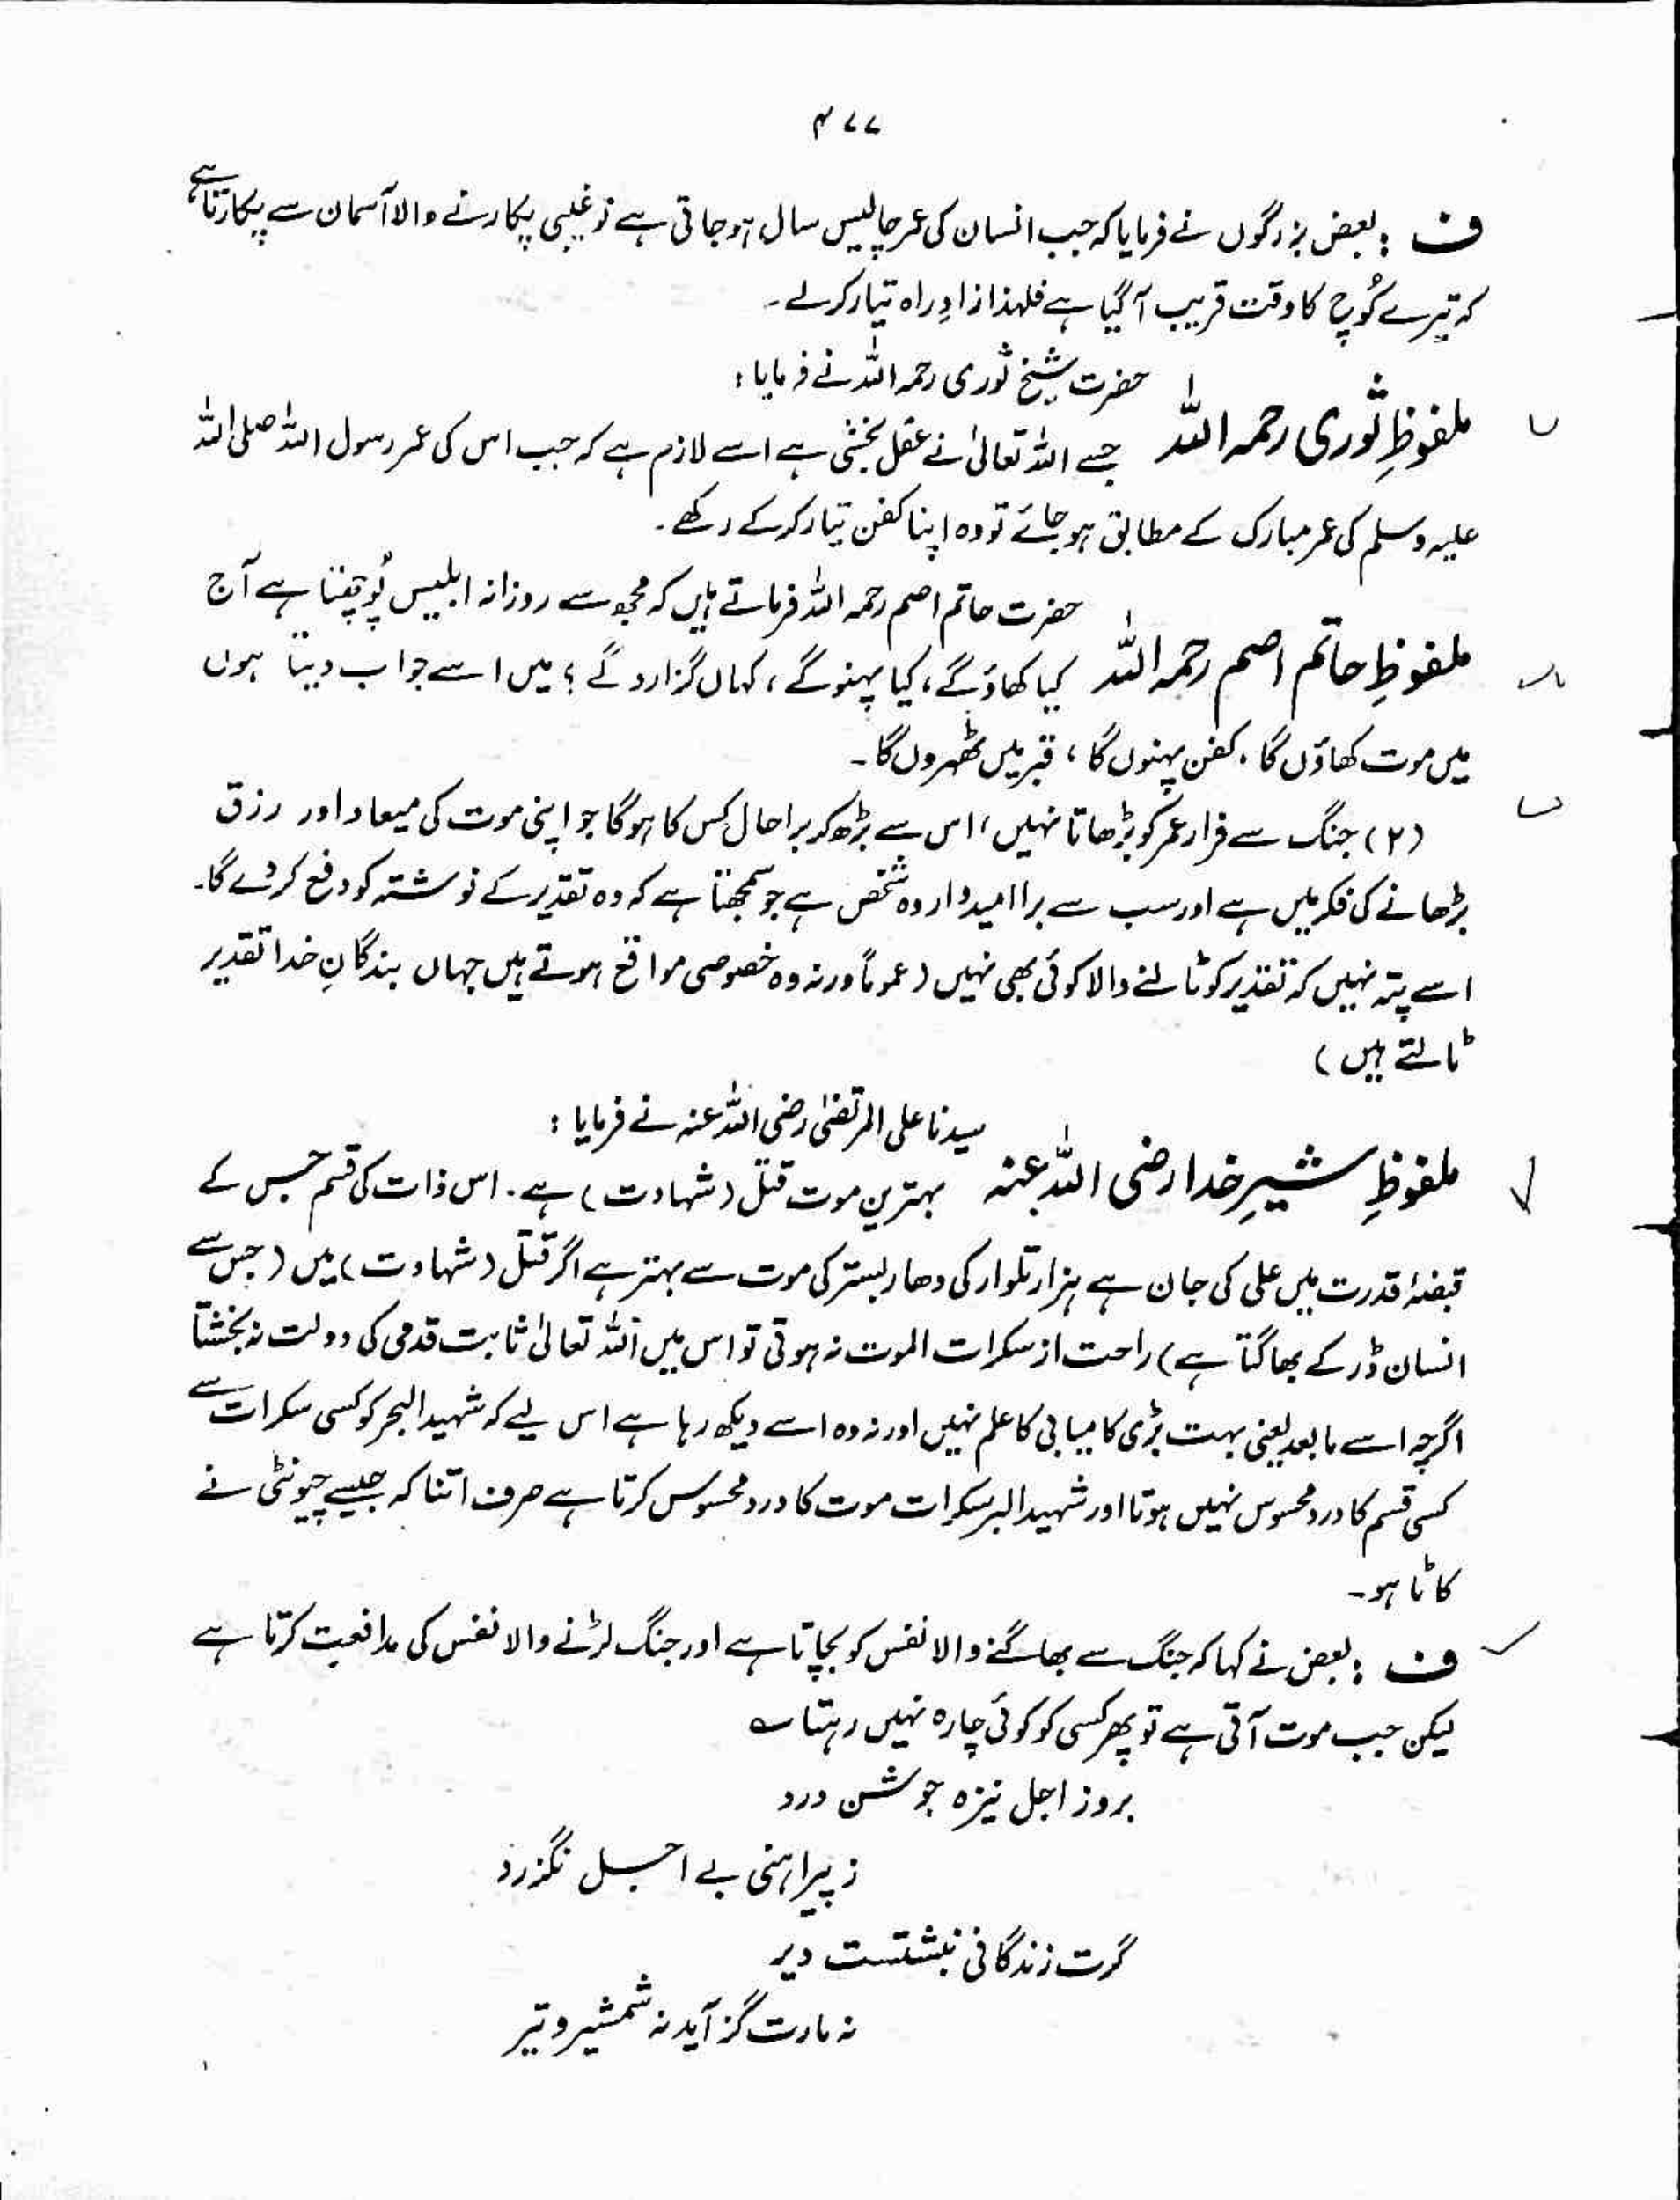 ۴۷۷
ف : بعض بزرگوں نے فرمایا کہ جب انسان کی عمر چالیس سال ہو جاتی ہے تو غیبی پکارنے والا آسمان سے پکارتا ہے
کہ تیرے کُوچ کا وقت قریب آ گیا ہے فلہذا زادِ راہ تیار کر لے ۔
حضرت شیخ ثوری رحمہ اللہ نے فرمایا :
ملفوظِ ثوری رحمہ اللہ جسے اللہ تعالیٰ نے عقل بخشی ہے اسے لازم ہے کہ جب اس کی عمر رسول اللہ صلی اللہ
علیہ وسلم کی عمر مبارک کے مطابق ہو جائے تو وہ اپنا کفن تیار کر کے رکھے ۔
حضرت حاتم اصم رحمہ اللہ فرماتے ہیں کہ مجھ سے روزانہ ابلیس پُوچھتا ہے آج
ملفوظِ حاتم اصم رحمہ اللہ کیا کھاؤ گے، کیا پہنو گے، کہاں گزارو گے ؟ میں اسے جواب دیتا ہوں
میں موت کھاؤں گا، کفن پہنوں گا، قبر میں ٹھہروں گا ۔
(۲) جنگ سے فرار عمر کو بڑھاتا نہیں، اس سے بڑھ کر برا حال کس کا ہو گا جو اپنی موت کی میعاد اور رزق
بڑھانے کی فکر میں ہے اور سب سے برا امیدوار وہ شخص ہے جو سمجھتا ہے کہ وہ تقدیر کے نوشتہ کو دفع کر دے گا۔
اسے پتہ نہیں کہ تقدیر کو ٹالنے والا کوئی بھی نہیں (عموماً ورنہ وہ خصوصی مواقع ہوتے ہیں جہاں بندگانِ خدا تقدیر
ٹالتے ہیں)
سیدنا علی المرتضیٰ رضی اللہ عنہ نے فرمایا :
ملفوظِ شیرِ خدا رضی اللہ عنہ بہترین موت قتل (شہادت) ہے۔ اس ذات کی قسم جس کے
قبضۂ قدرت میں علی کی جان ہے ہزار تلوار کی دھار بستر کی موت سے بہتر ہے اگر قتل (شہادت) میں (جس سے
انسان ڈر کے بھاگتا ہے) راحت از سکرات الموت نہ ہوتی تو اس میں اللہ تعالیٰ ثابت قدمی کی دولت نہ بخشتا
اگرچہ اسے مابعد یعنی بہت بڑی کامیابی کا علم نہیں اور نہ وہ اسے دیکھ رہا ہے اس لیے کہ شہید البحر کو کسی سکرات سے
کسی قسم کا درد محسوس نہیں ہوتا اور شہید البر سکرات موت کا درد محسوس کرتا ہے صرف اتنا کہ جیسے چیونٹی نے
کاٹا ہو۔
ف : بعض نے کہا کہ جنگ سے بھاگنے والا نفس کو بچاتا ہے اور جنگ لڑنے والا نفس کی مدافعت کرتا ہے
لیکن جب موت آتی ہے تو پھر کسی کو کوئی چارہ نہیں رہتا ؎
بروز اجل نیزہ جوشن درد
ز پیراہنی بے اجل نگزرد
گرت زندگانی نبشتست دیر
نہ مارت گز آید نہ شمشیر و تیر